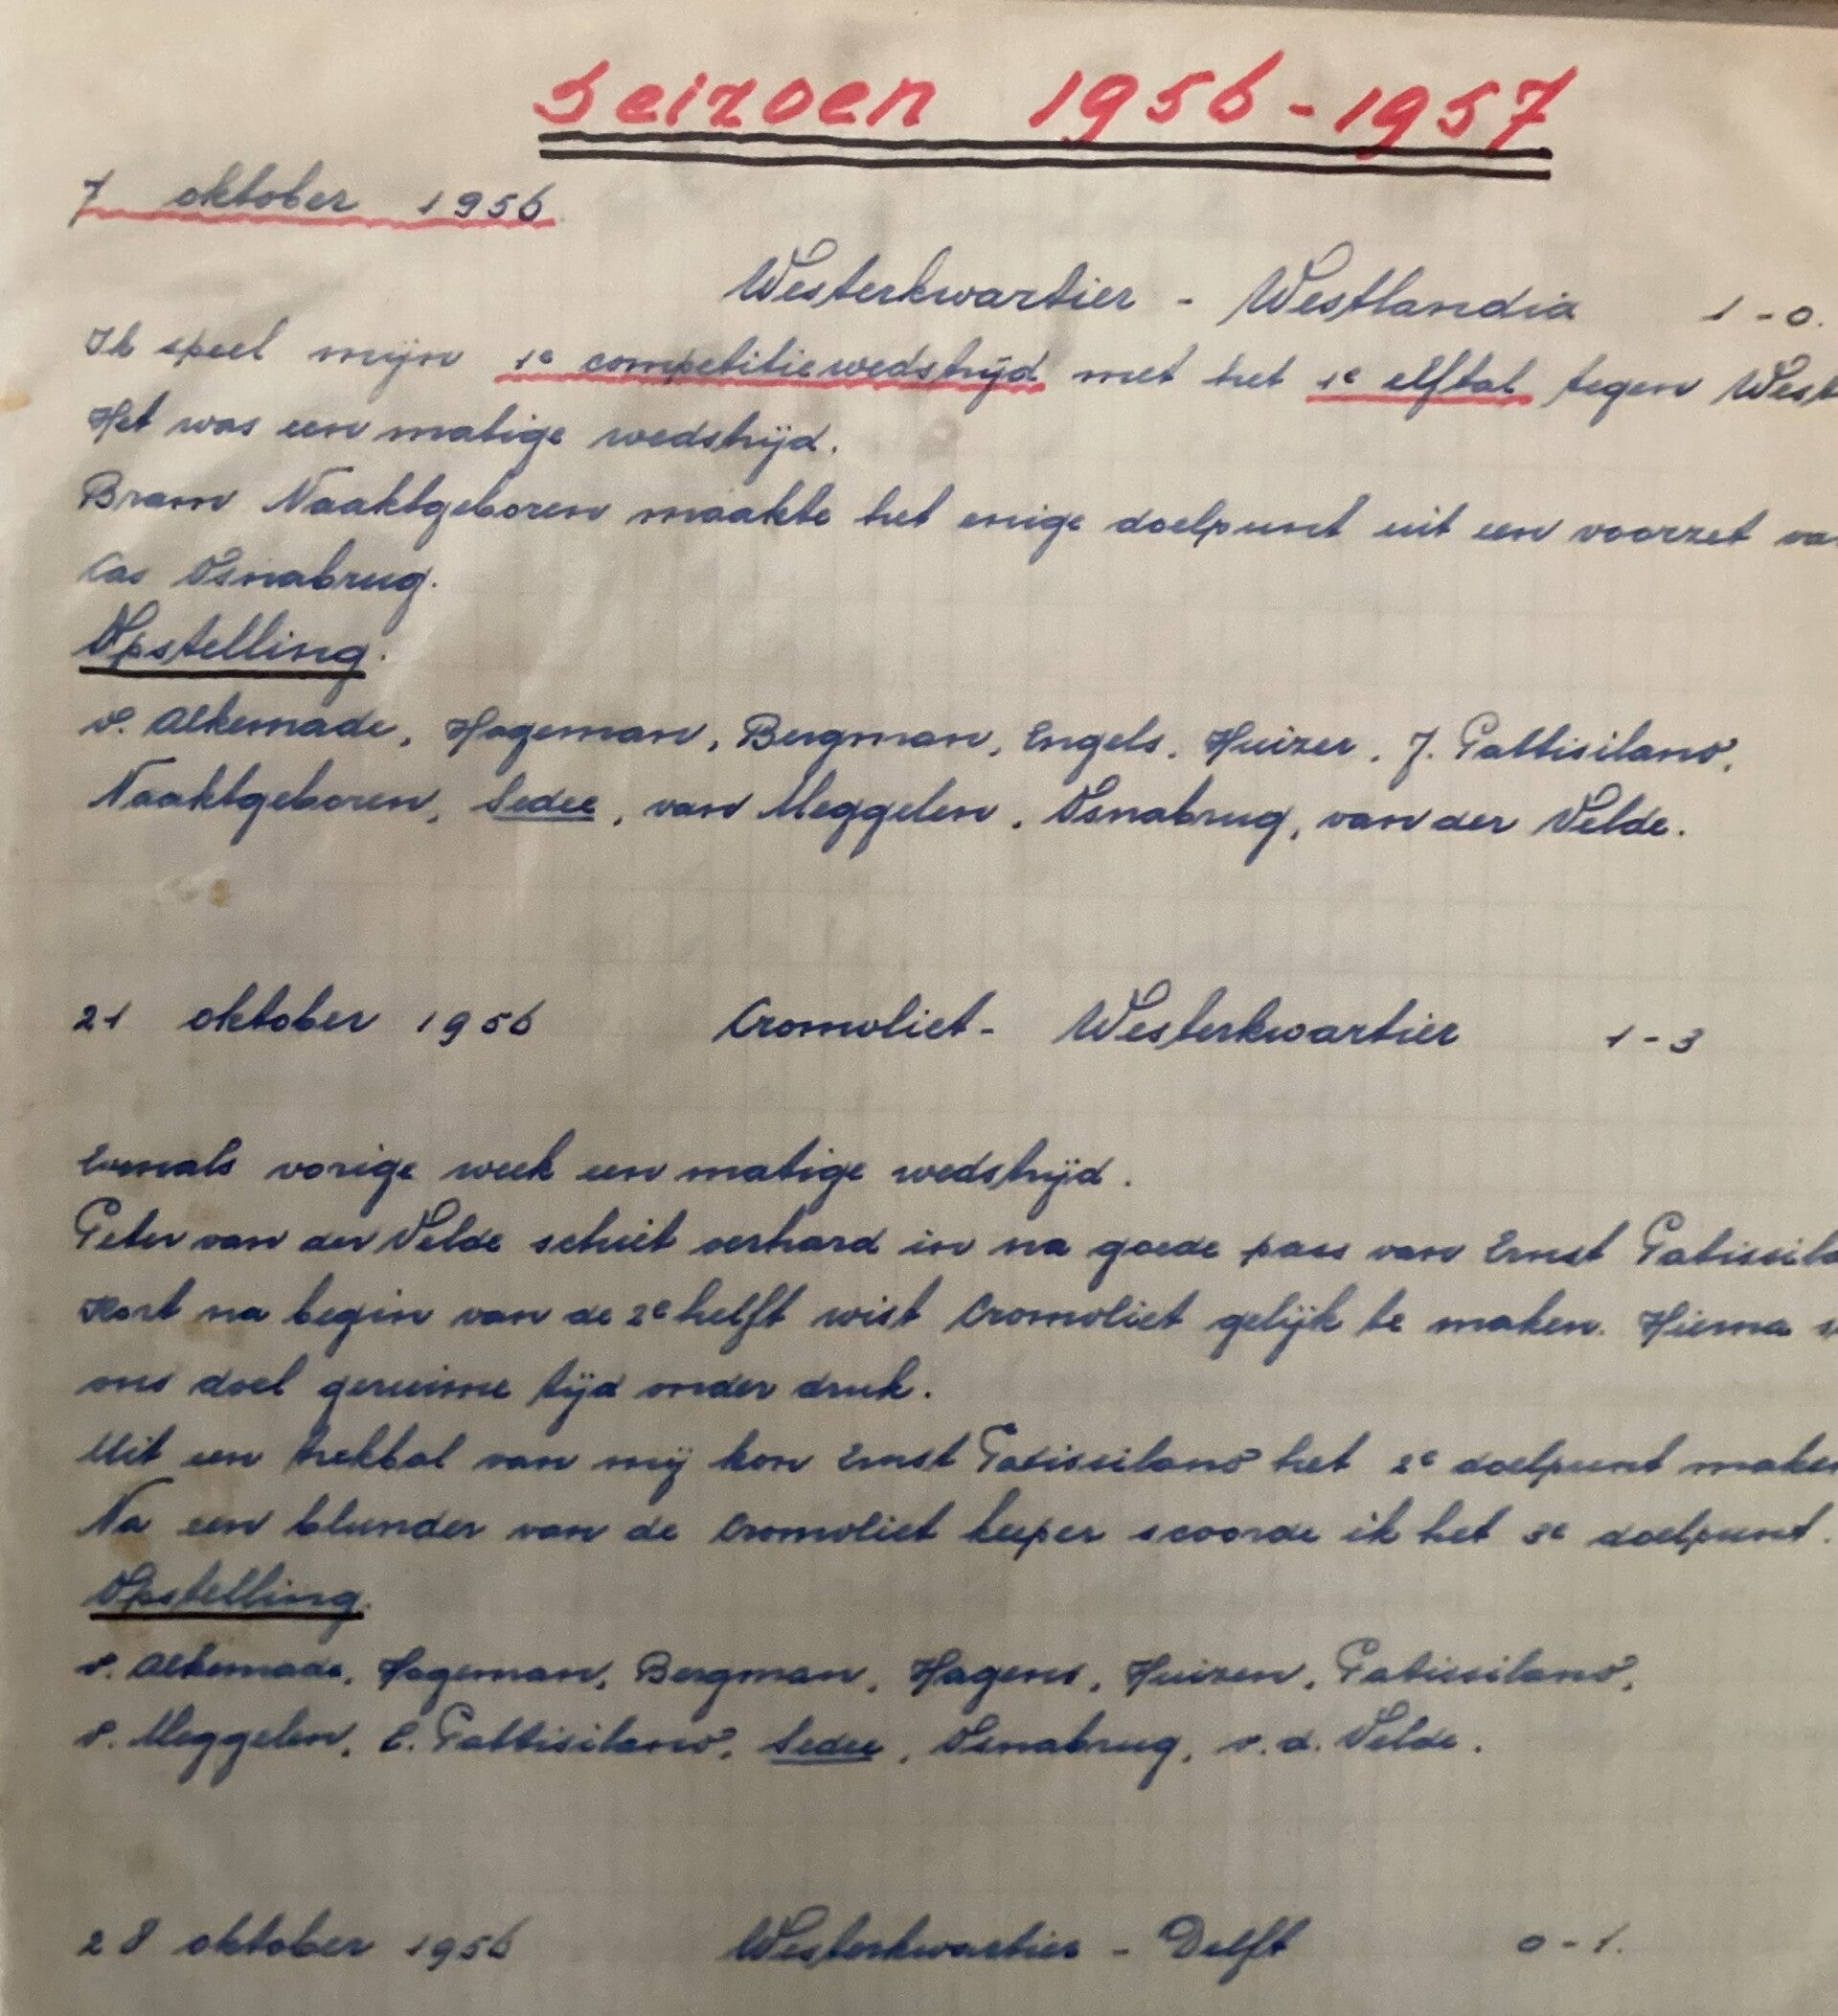 Seizoen 1956-1957
7 oktober 1956
Westerkwartier - Westlandia 1-0.
Ik speel mijn 1e competitiewedstrijd met het 1e elftal tegen West
Het was een matige wedstrijd.
Bram Naaktgeboren maakte het enige doelpunt uit een voorzet va
Cas Osnabrug.
Opstelling.
v. Alkemade, Hogeman, Bergman, Engels, Huizer, J. Pattisilano,
Naaktgeboren, Sedee, van Meggelen, Osnabrug, van der Velde.
21 oktober 1956 Cromvliet - Westerkwartier 1-3
Evenals vorige week een matige wedstrijd.
Peter van der Velde schiet verhard in na goede pass van Ernst Patissila
Kort na begin van de 2e helft wist Cromvliet gelijk te maken. Hierna
ons doel geruime tijd onder druk.
Uit een trekbal van mij kon Ernst Patissilano het 2e doelpunt maken
Na een blunder van de Cromvliet keeper scoorde ik het 3e doelpunt.
Opstelling.
v. Alkemade, Hogeman, Bergman, Hagens, Huizen, Patissilano,
v. Meggelen, E. Pattisilano, Sedee, Osnabrug, v.d. Velde.
28 oktober 1956 Westerkwartier - Delft 0-1.